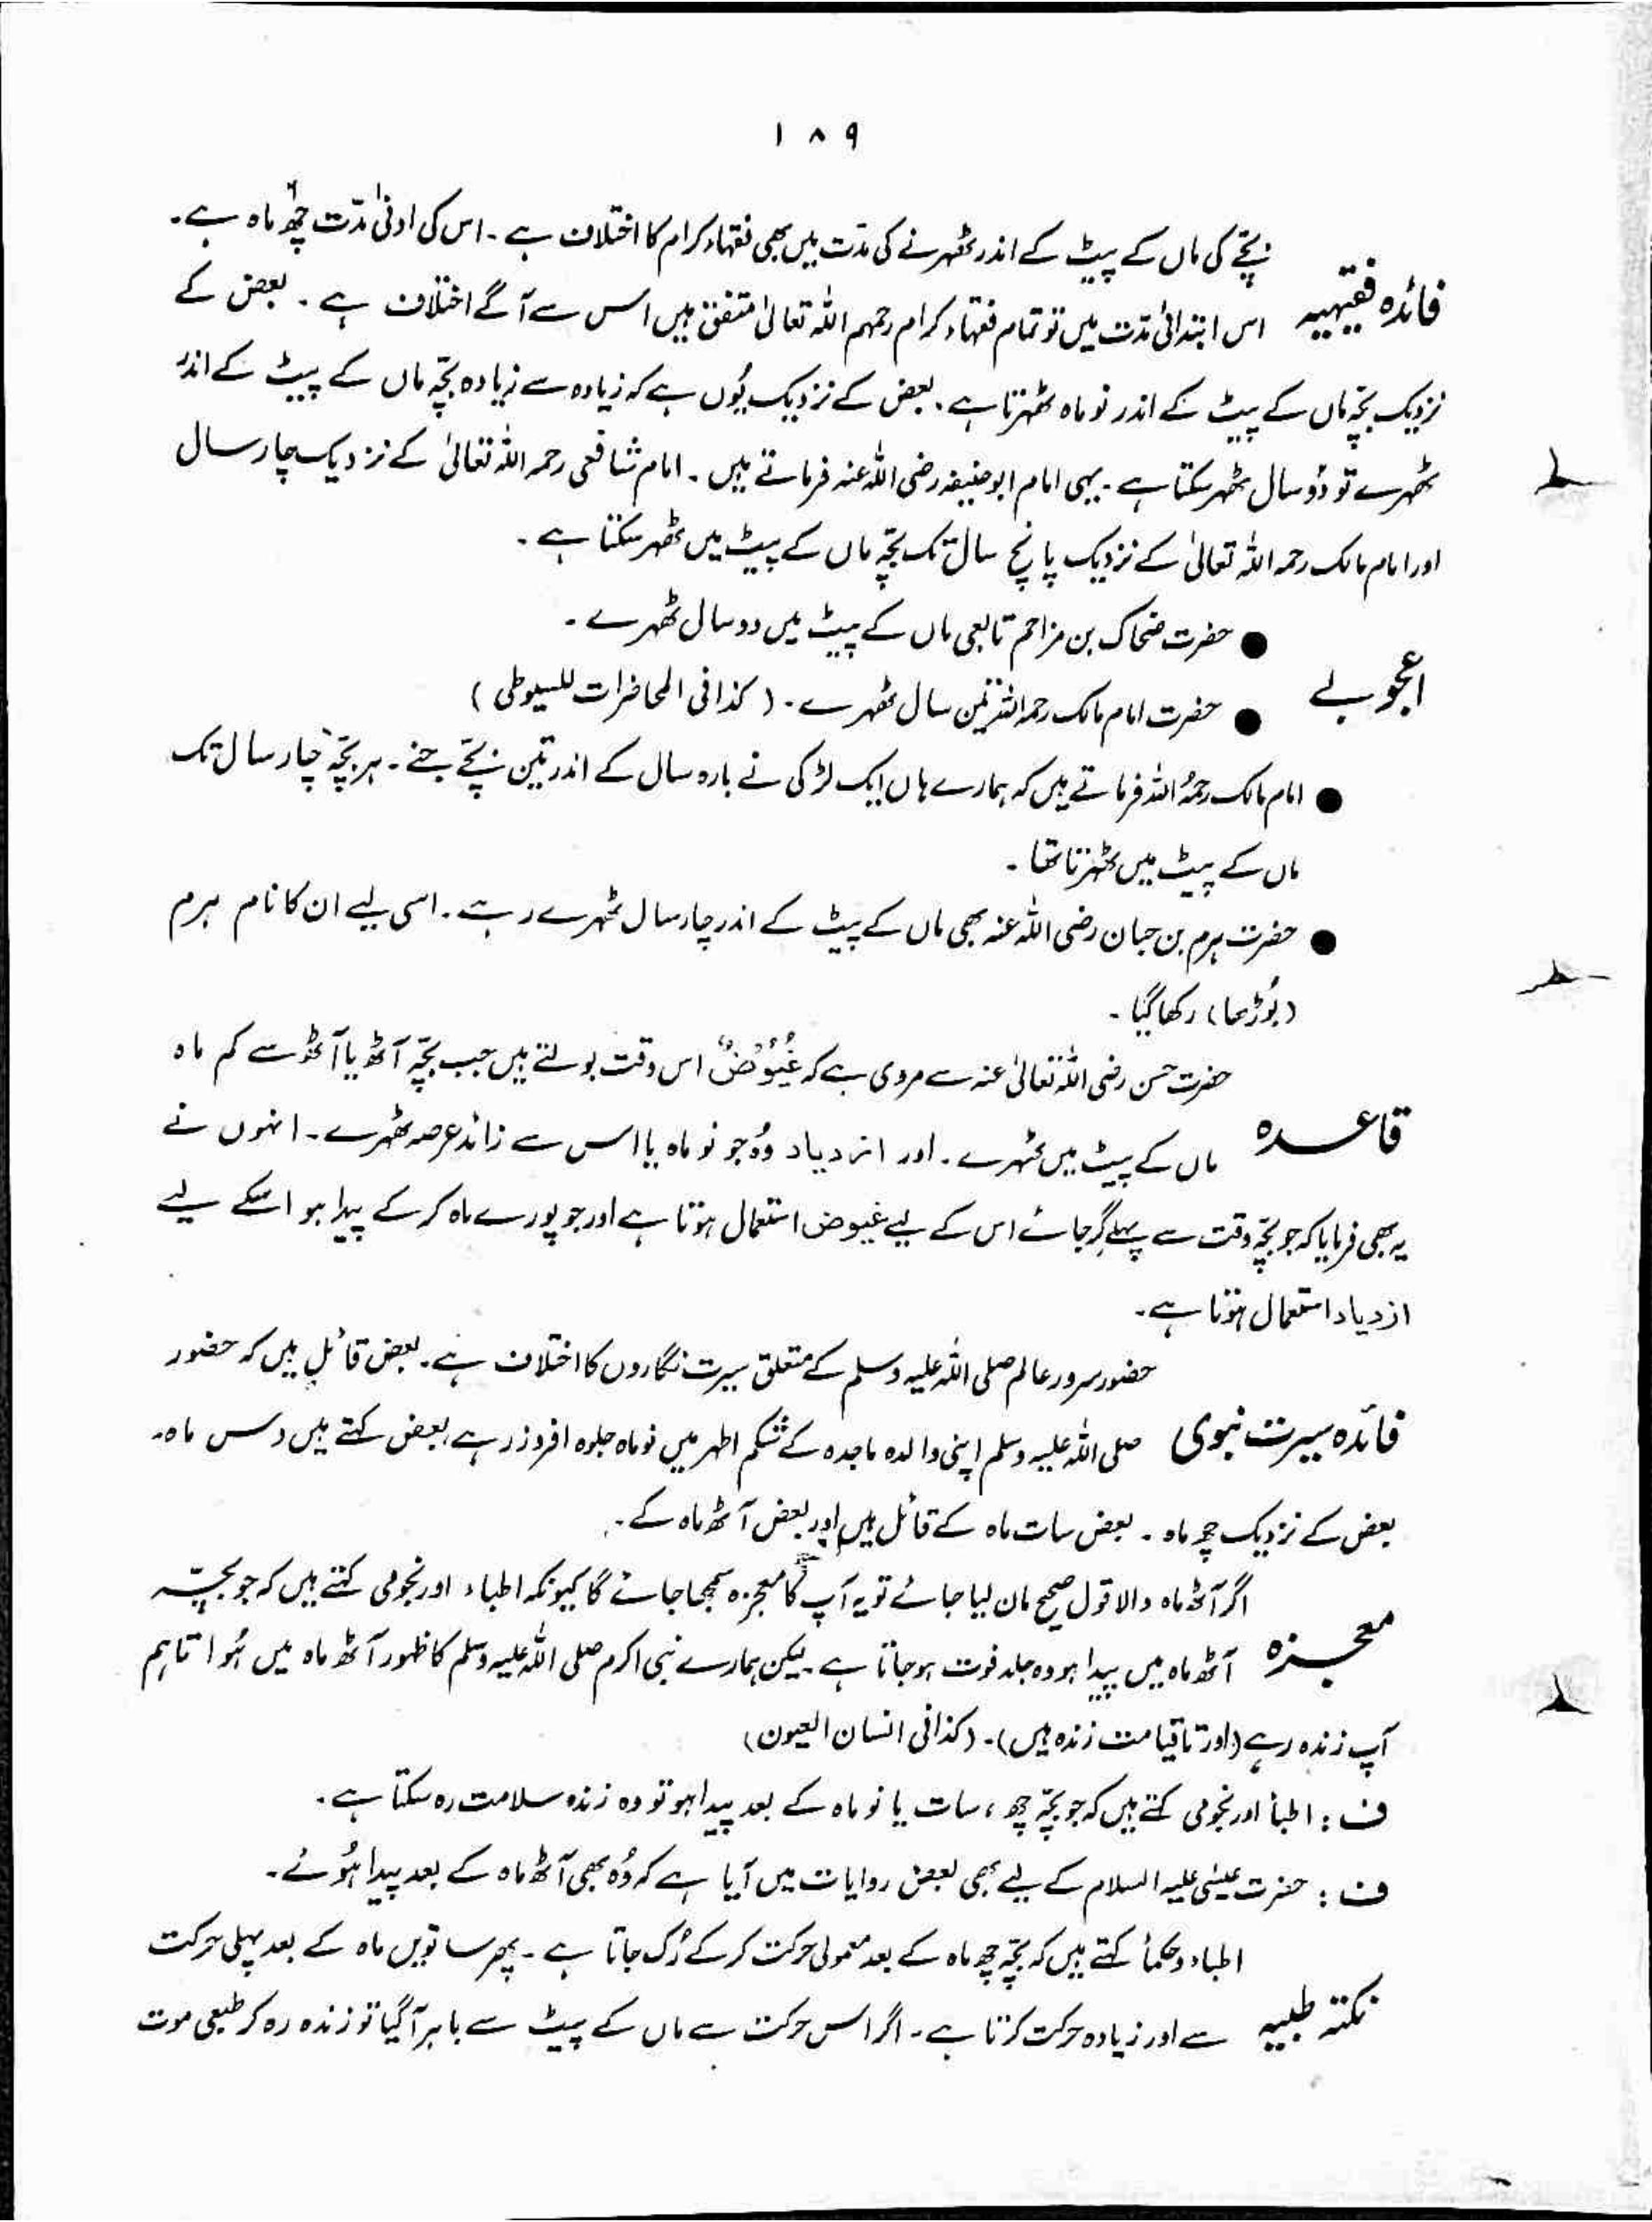 ۱۸۹
بچّے کی ماں کے پیٹ کے اندر ٹھہرنے کی مدّت میں بھی فقہاء کرام کا اختلاف ہے۔ اس کی ادنیٰ مدّت چھ ماہ ہے۔
فائدہ فقیہیہ اس ابتدائی مدّت میں تو تمام فقہاء کرام رحمہم اللہ تعالیٰ متفق ہیں اس سے آگے اختلاف ہے۔ بعض کے
نزدیک بچّہ ماں کے پیٹ کے اندر نو ماہ ٹھہرتا ہے۔ بعض کے نزدیک یُوں ہے کہ زیادہ سے زیادہ بچّہ ماں کے پیٹ کے اندر
ٹھہرے تو دُو سال ٹھہر سکتا ہے۔ یہی امام ابوحنیفہ رضی اللہ عنہ فرماتے ہیں۔ امام شافعی رحمہ اللہ تعالیٰ کے نزدیک چار سال
اور امام مالک رحمہ اللہ تعالیٰ کے نزدیک پانچ سال تک بچّہ ماں کے پیٹ میں ٹھہر سکتا ہے۔
● حضرت ضحاک بن مزاحم تابعی ماں کے پیٹ میں دو سال ٹھہرے۔
اعجوبے
● حضرت امام مالک رحمہ اللہ تین سال ٹھہرے۔ (کذا فی المحاضرات للسیوطی)
● امام مالک رحمہُ اللہ فرماتے ہیں کہ ہمارے ہاں ایک لڑکی نے بارہ سال کے اندر تین بچّے جنے۔ ہر بچّہ چار سال تک
ماں کے پیٹ میں ٹھہرتا تھا۔
● حضرت ہرم بن حبان رضی اللہ عنہ بھی ماں کے پیٹ کے اندر چار سال ٹھہرے رہے۔ اسی لیے ان کا نام ہرم
(بُوڑھا) رکھا گیا۔
حضرت حسن رضی اللہ تعالیٰ عنہ سے مروی ہے کہ غُیُوضٌ اس وقت بولتے ہیں جب بچّہ آٹھ یا آٹھ سے کم ماہ
قاعدہ ماں کے پیٹ میں ٹھہرے۔ اور ازدیاد وُہ جو نو ماہ یا اس سے زائد عرصہ ٹھہرے۔ انہوں نے
یہ بھی فرمایا کہ جو بچّہ وقت سے پہلے گر جائے اس کے لیے غیوض استعمال ہوتا ہے اور جو پورے ماہ کر کے پیدا ہو اسکے لیے
ازدیاد استعمال ہوتا ہے۔
حضور سرور عالم صلی اللہ علیہ وسلم کے متعلق سیرت نگاروں کا اختلاف ہے۔ بعض قائل ہیں کہ حضور
فائدہ سیرت نبوی صلی اللہ علیہ وسلم اپنی والدہ ماجدہ کے شکم اطہر میں نو ماہ جلوہ افروز رہے، بعض کہتے ہیں دس ماہ۔
بعض کے نزدیک چھ ماہ۔ بعض سات ماہ کے قائل ہیں اور بعض آٹھ ماہ کے۔
اگر آٹھ ماہ والا قول صحیح مان لیا جائے تو یہ آپ کا معجزہ سمجھا جائے گا کیونکہ اطباء اور نجومی کہتے ہیں کہ جو بچہ
معجزہ آٹھ ماہ میں پیدا ہو وہ جلد فوت ہو جاتا ہے۔ لیکن ہمارے نبی اکرم صلی اللہ علیہ وسلم کا ظہور آٹھ ماہ میں ہُوا تاہم
آپ زندہ رہے (اور تا قیامت زندہ ہیں)۔ (کذا فی انسان العیون)
ف : اطبأ اور نجومی کہتے ہیں کہ جو بچّہ چھ، سات یا نو ماہ کے بعد پیدا ہو تو وہ زندہ سلامت رہ سکتا ہے۔
ف : حضرت عیسٰی علیہ السلام کے لیے بھی بعض روایات میں آیا ہے کہ وُہ بھی آٹھ ماہ کے بعد پیدا ہُوئے۔
اطباء و حکمأ کہتے ہیں کہ بچّہ چھ ماہ کے بعد معمولی حرکت کر کے رُک جاتا ہے۔ پھر ساتویں ماہ کے بعد پہلی حرکت
نکتہ طبیہ سے اور زیادہ حرکت کرتا ہے۔ اگر اس حرکت سے ماں کے پیٹ سے باہر آ گیا تو زندہ رہ کر طبعی موت